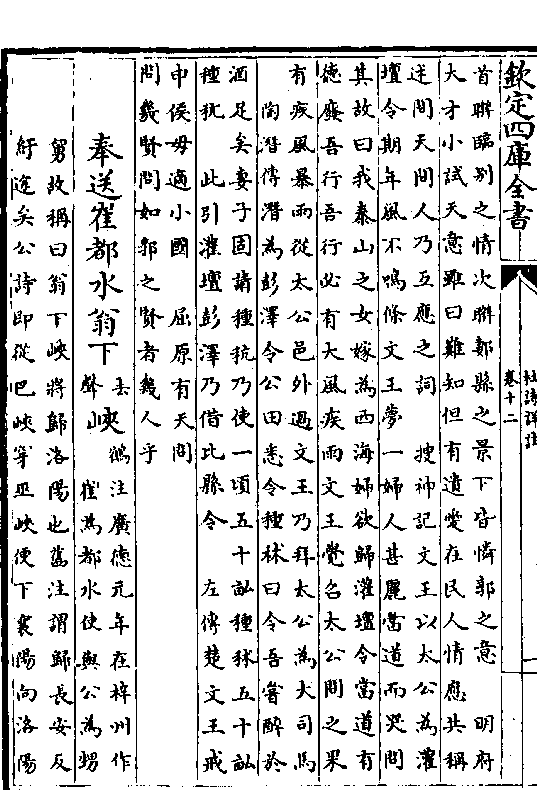 欽定四庫全書
杜詩詳註
卷十二
首聯臨别之情次聯郪縣之景下皆憐郭之意　明府
大才小試天意雖曰難知但有遺愛在民人情應共稱
述問天問人乃互應之詞　搜神記文王以太公為灌
壇令期年風不鳴條文王夢一婦人甚麗當道而哭問
其故曰我泰山之女嫁為西海婦欲歸灌壇令當道有
徳廢吾行吾行必有大風疾雨文王覺召太公問之果
有疾風暴雨從太公邑外過文王乃拜太公為大司馬
陶潛傳潛為彭澤令公田悉令種秫曰令吾嘗醉於
酒足矣妻子固請種秔乃使一頃五十畝種秫五十畝
種秔　此引灌壇彭澤乃借比縣令　左傳楚文王戒
申侯毋適小國　屈原有天問
問幾賢問如郭之賢者幾人乎
奉送崔都水翁下去聲峽
鶴注廣徳元年在梓州作
崔為都水使與公為甥
舅故稱曰翁下峽將歸洛陽也舊注謂歸長安反
紆途矣公詩即從巴峽穿巫峽便下襄陽向洛陽